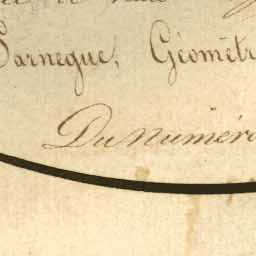 Sarnegue, Géomètr
Du Numéro